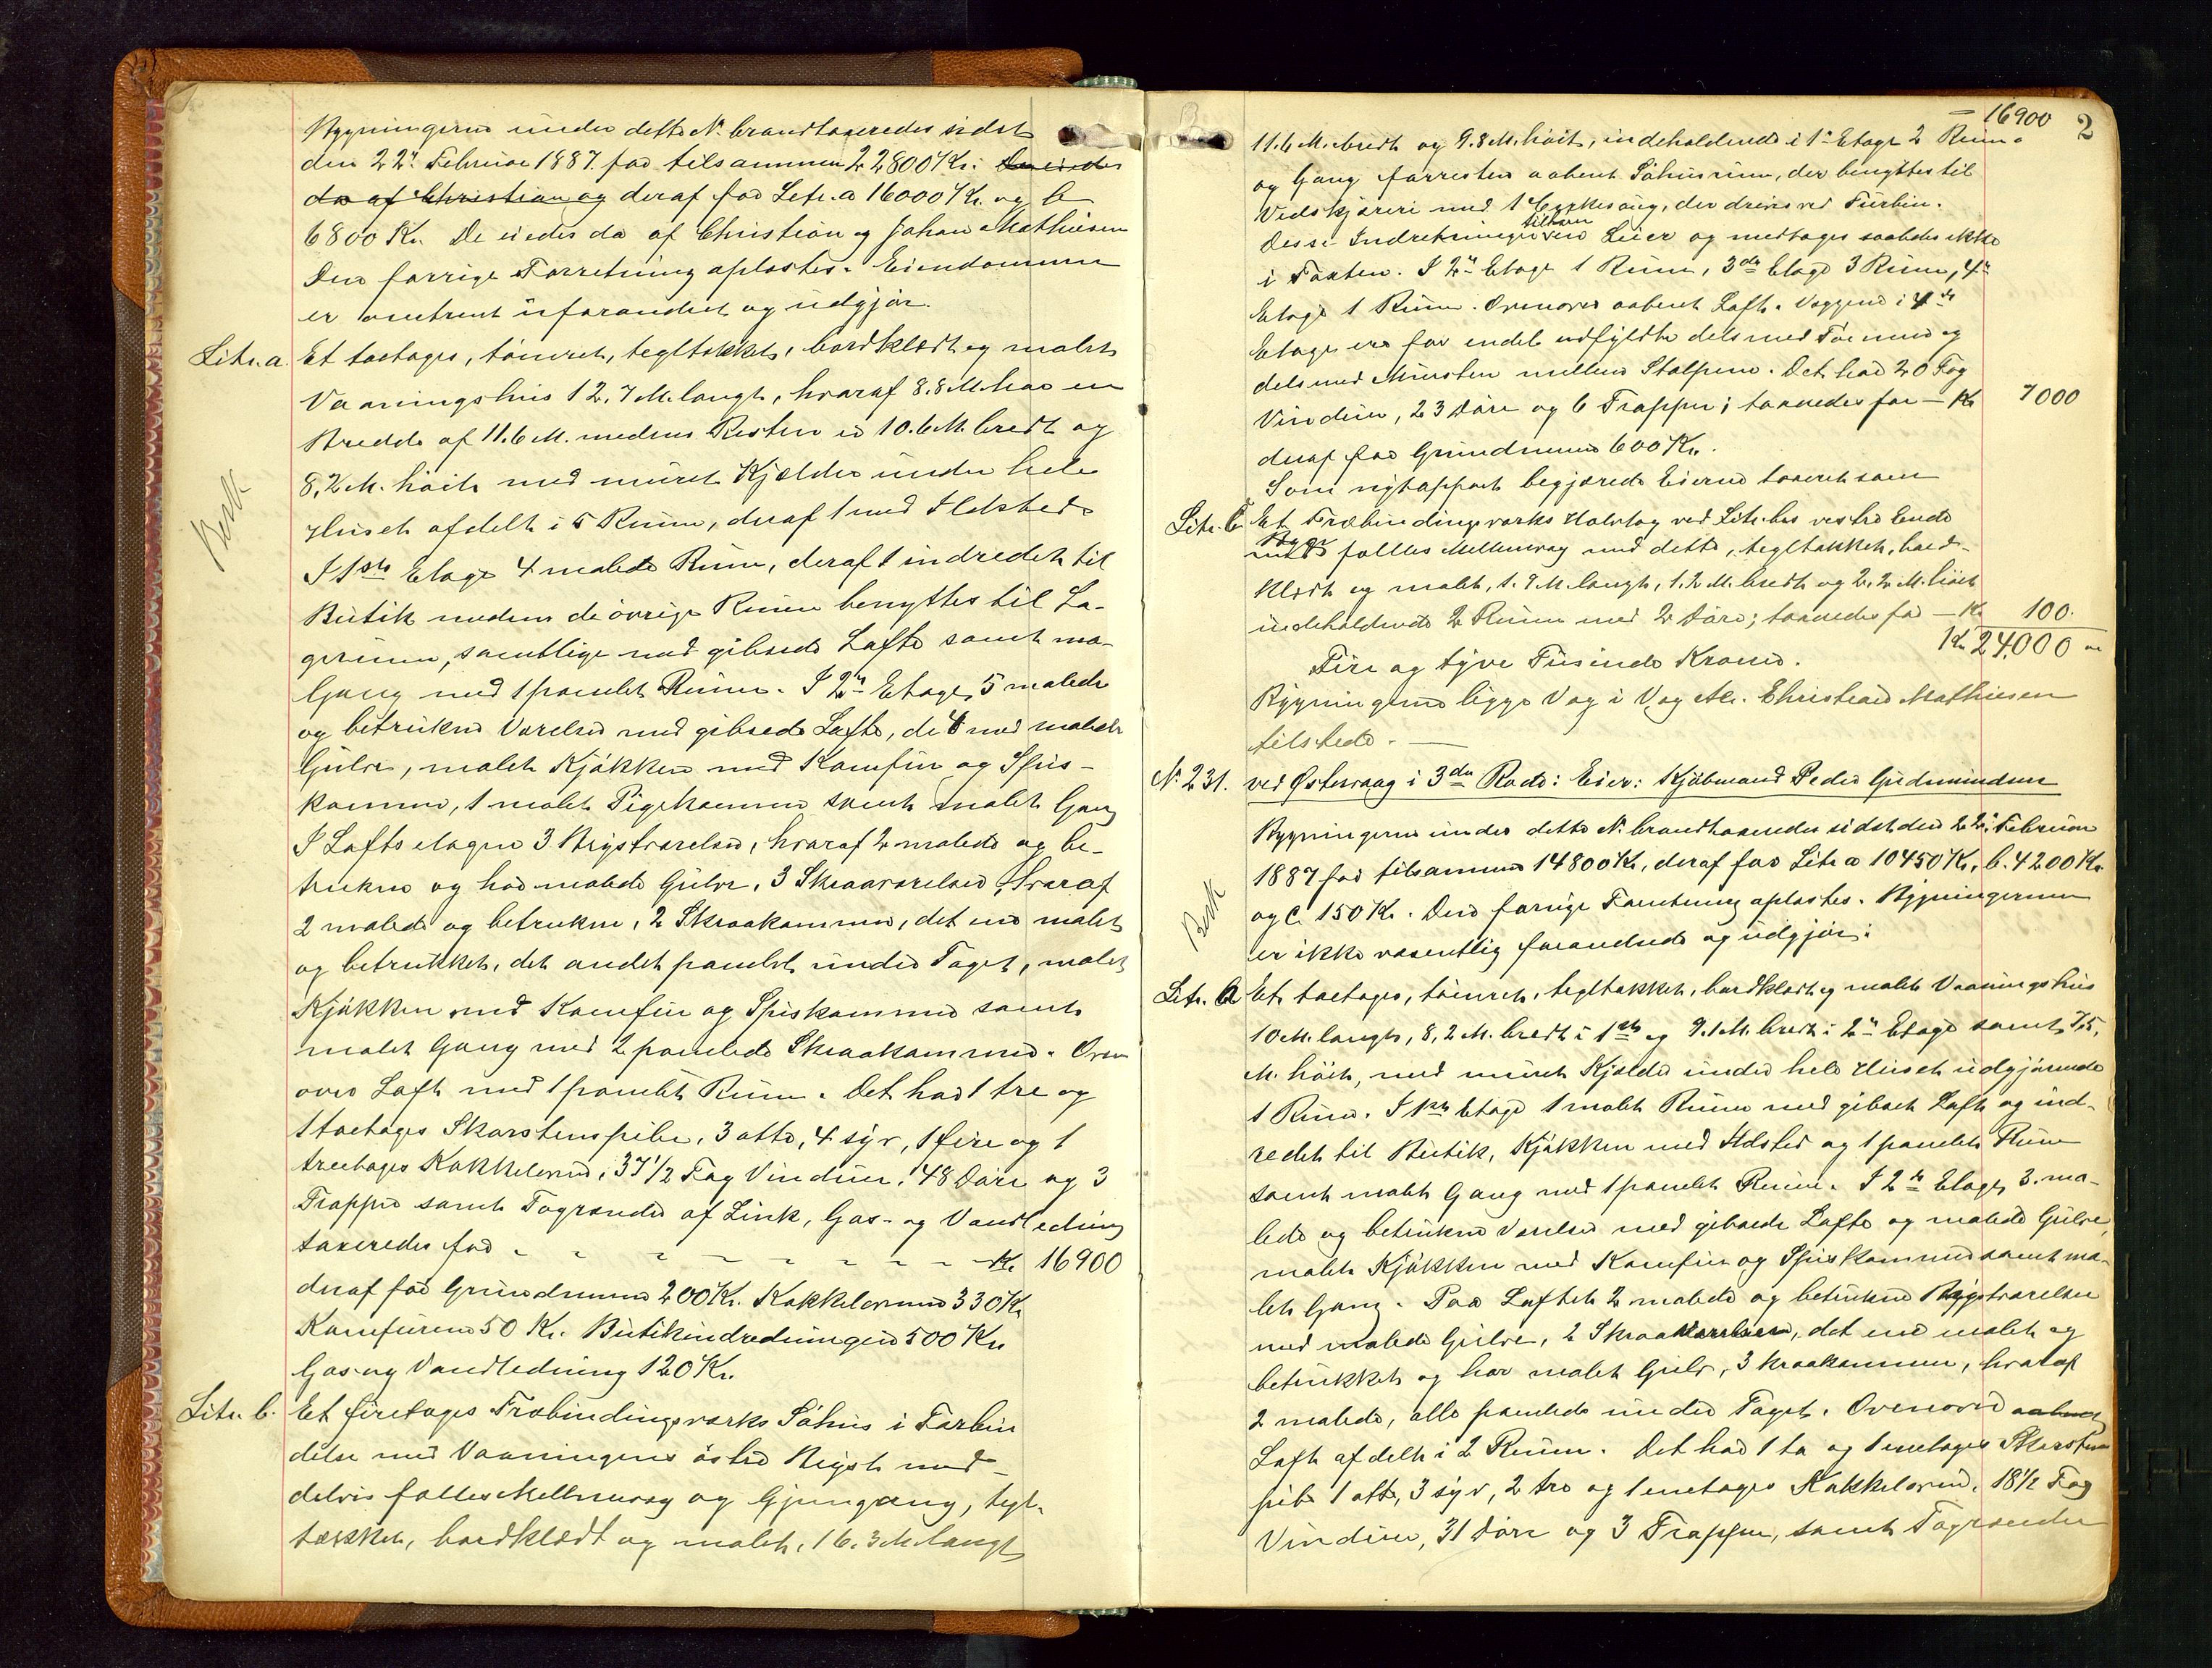 Bygningerne under dette N. brandtaxeredes sidst
den 22de Februar 1887 for tilsammen 22800 Kr. De eiedes
da af Christian og deraf for Litr. a 16000 Kr. og b
6800 Kr. De eiedes da af Christian og Johan Mathiesen
Den forrige Forretning oplæstes. Eiendommen
er omtrent uforandret og udgjør.
Litr. a. Et toetages, tømret, tegltækket, bordklædt og malet
Vaaningshus 12.7 M. langt, hvoraf 8.8 M. har en
Bredde af 11.6 M. medens Resten er 10.6 M. bredt og
8.2 M. høit med muret Kjelder under hele
Huset afdelt i 5 Rum, deraf 1 med Ildsted.
Besk
I 1ste Etage 4 malede Rum, deraf 1 indredet til
Butik medens de øvrige Rum benyttes til La-
gerrum, samtlige med gibsede Lofte samt ma-
Gang med 1 panelet Rum. I 2den Etage, 5 malede
og betrukne Værelser med gibsede Lofte, de 4 med malede
Gulve, malet Kjøkken med Komfur og Spis-
kammer, 1 malet Pigekammer samt malet Gang
I Loftsetagen 3 Brystværelser, hvoraf 2 malede og be-
trukne og har malede Gulve, 3 Skraaværelser, hvoraf
2 malede og betrukne, 2 Skraakammer, det ene malet
og betrukket, det andet panelet under Taget, malet
Kjøkken med Komfur og Spiskammer samt
malet Gang med 2 panelede Skraakammer. Oven
over Loft med 1 panelet Rum. Det har 1 tre og
1 toetages Skorstenspibe, 3 otte, 4 syv, 1 fire og 1
treetages Kakkelovne, 37 1/2 Fag Vinduer, 48 Døre og 3
Trapper samt Tagrender af Zink, Gas- og Vandledning
taxeredes for - - - - - - - - - Kr. 16900
deraf for Grundmuren 200 Kr. Kakkelovnene 330 Kr.
Komfurene 50 Kr. Butikindredningen 500 Kr.
Gas og Vandledning 120 Kr.
Litr. b. Et fireetages Træbindingsværks Søhus i Forbin
delse med Vaaningens østre Bryst med
delvis fælles Mellemvæg og Gjemgang, tegl-
tækket, bordklædt og malet, 16.3 M. langt
2
= 16900
11.6 M. bredt og 9.8 M. høit, indeholdende i 1ste Etage 2 Rum
og Gang forresten aabent Søhusrum, der benyttes til
Vedskjæreri med 1 Cirkelsaug, der drives ved Turbin.
tilhører
Disse Indretninger Leier og medtages saaledes ikke
i Taxten. I 2den Etage 1 Rum, 3die Etage 3 Rum, 4de
Etage 1 Rum. Ovenover aabent Loft. Væggene i 4de
Etage er for endel udfyldte dels med Tømmer og
dels med Mursten mellem Stolperne. Det har 20 Fag
Vinduer, 23 Døre og 6 Trapper; taxeredes for - Kr. 7000
deraf for Grundmuren 600 Kr.
Som nyt opført begjærede Eierne taxeret som
Litr. c. Et Træbindingsværks Halvtag ved Litr. bs vestre Ende
med fælles Mellemvæg med dette, tegltækket, bord-
klædt og malet, 1.7 M. langt, 1.2 M. bredt og 2.2 M. høit
indeholdende 2 Rum med 2 Døre; taxeredes for - Kr. 100.
Kr. 24000
Fire og tyve Tusinde Kroner.
Bygningerne ligge Væg i Væg etc. Christian Mathiesen
tilstede.
N. 231. ved Østervaag i 3die Rode: Eier: Kjøbmand Peder Gudmundsen
Bygningerne under dette N. brandtaxeredes sidst den 22de Februar
1887 for tilsammen 14800 Kr, deraf for Litr. a 10450 Kr, b. 4200 Kr.
og c. 150 Kr. Den forrige Forretning oplæstes. Bygningerne
Besk
er ikke væsentlig forandrede og udgjør:
Litr. a Et toetages, tømret, tegltækket, bordklædt og malet Vaaningshus
10 M. langt, 8,2 M. bredt i 1ste og 9.1 M. bredt i 2den Etage samt 7,5.
M. høit, med muret Kjelder under hele Huset udgjørende
1 Rum. I 1ste Etage 1 malet Rum med gibset Loft og ind-
redet til Butik, Kjøkken med Ildsted og 1 panelet Rum
samt malet Gang med 1 panelet Rum. I 2den Etage, 3 ma-
lede og betrukne Værelser med gibsede Lofte og malede Gulve,
malet Kjøkken med Komfur og Spiskammer samt ma-
let Gang. Paa Loftet 2 malede og betrukne Brystværelser
med malede Gulve, 2 Skraaværelser, det ene malet og
betrukket og har malet Gulv, 3 Skraakammer, hvoraf
2 malede, alle panelede under Taget. Ovenover aabent
Loft afdelt i 2 Rum. Det har 1 to og 1 enetages Skorstens
pibe 1 otte, 3 syv, 2 tre og 1 enetages Kakkelovne, 18 1/2 Fag
Vinduer, 31 Døre og 3 Trapper, samt Tagrender